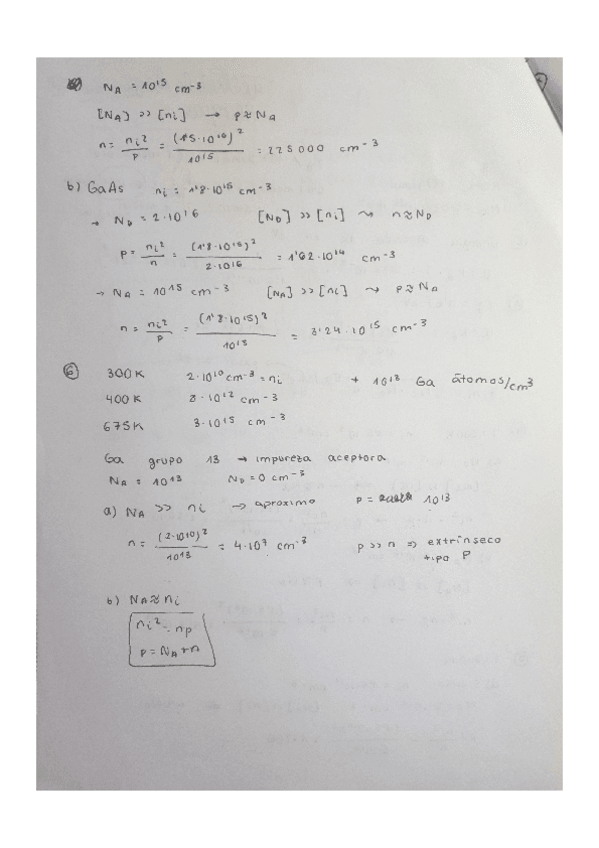 N_A = 10^15 cm^-3
[N_A] >> [n_i] → p ≈ N_A
n = n_i^2 / p = (1'5·10^10)^2 / 10^15 = 225000 cm^-3
b) GaAs n_i = 1'8·10^15 cm^-3
→ N_D = 2·10^16 [N_D] >> [n_i] ⇝ n ≈ N_D
p = n_i^2 / n = (1'8·10^15)^2 / 2·10^16 = 1'62·10^14 cm^-3
→ N_A = 10^15 cm^-3 [N_A] >> [n_i] ⇝ p ≈ N_A
n = n_i^2 / p = (1'8·10^15)^2 / 10^15 = 3'24·10^15 cm^-3
⑥ 300K 2·10^10 cm^-3 = n_i + 10^13 Ga átomos/cm^3
400K 8·10^12 cm^-3
675K 3·10^15 cm^-3
Ga grupo 13 → impureza aceptora
N_A = 10^13 N_D = 0 cm^-3
a) N_A >> n_i → aproximo p = 10^13
n = (2·10^10)^2 / 10^13 = 4·10^7 cm^-3 p >> n ⇒ extrínseco
tipo P
b) N_A ≈ n_i
n_i^2 = np
p = N_A + n